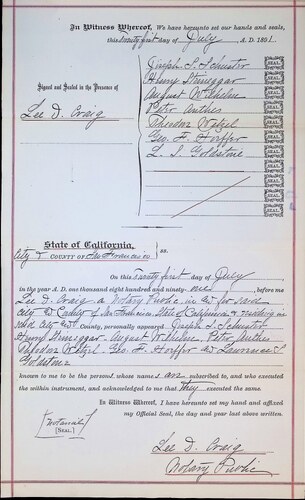 In Witness Whereof, We have hereunto set our hands and seals,
this Twenty first day of July A. D. 1891
Signed and Sealed in the Presence of
Lee D. Craig
Joseph S. Schuster SEAL.
Henry SEAL.
August Wilhelm SEAL.
Peter Anthes SEAL.
Theodor Wetzel SEAL.
Geo. F. Horffer SEAL.
L. S. Goldstone SEAL.
State of California,
City & COUNTY OF San Francisco ss.
On this Twenty first day of July
in the year A. D. one thousand eight hundred and ninety-one before me
Lee D. Craig a Notary Public in and for said
City and County of San Francisco State of California residing in
said City and County, personally appeared Joseph S. Schuster
Henry August Wilhelm, Peter Anthes
Theodor Wetzel. Geo. F. Horffer and Lawrence S.
Goldstone
known to me to be the persons whose names are subscribed to, and who executed
the within instrument, and acknowledged to me that they executed the same.
In Witness Whereof, I have hereunto set my hand and affixed
my Official Seal, the day and year last above written.
Notarial
[SEAL.]
Lee D. Craig
Notary Public